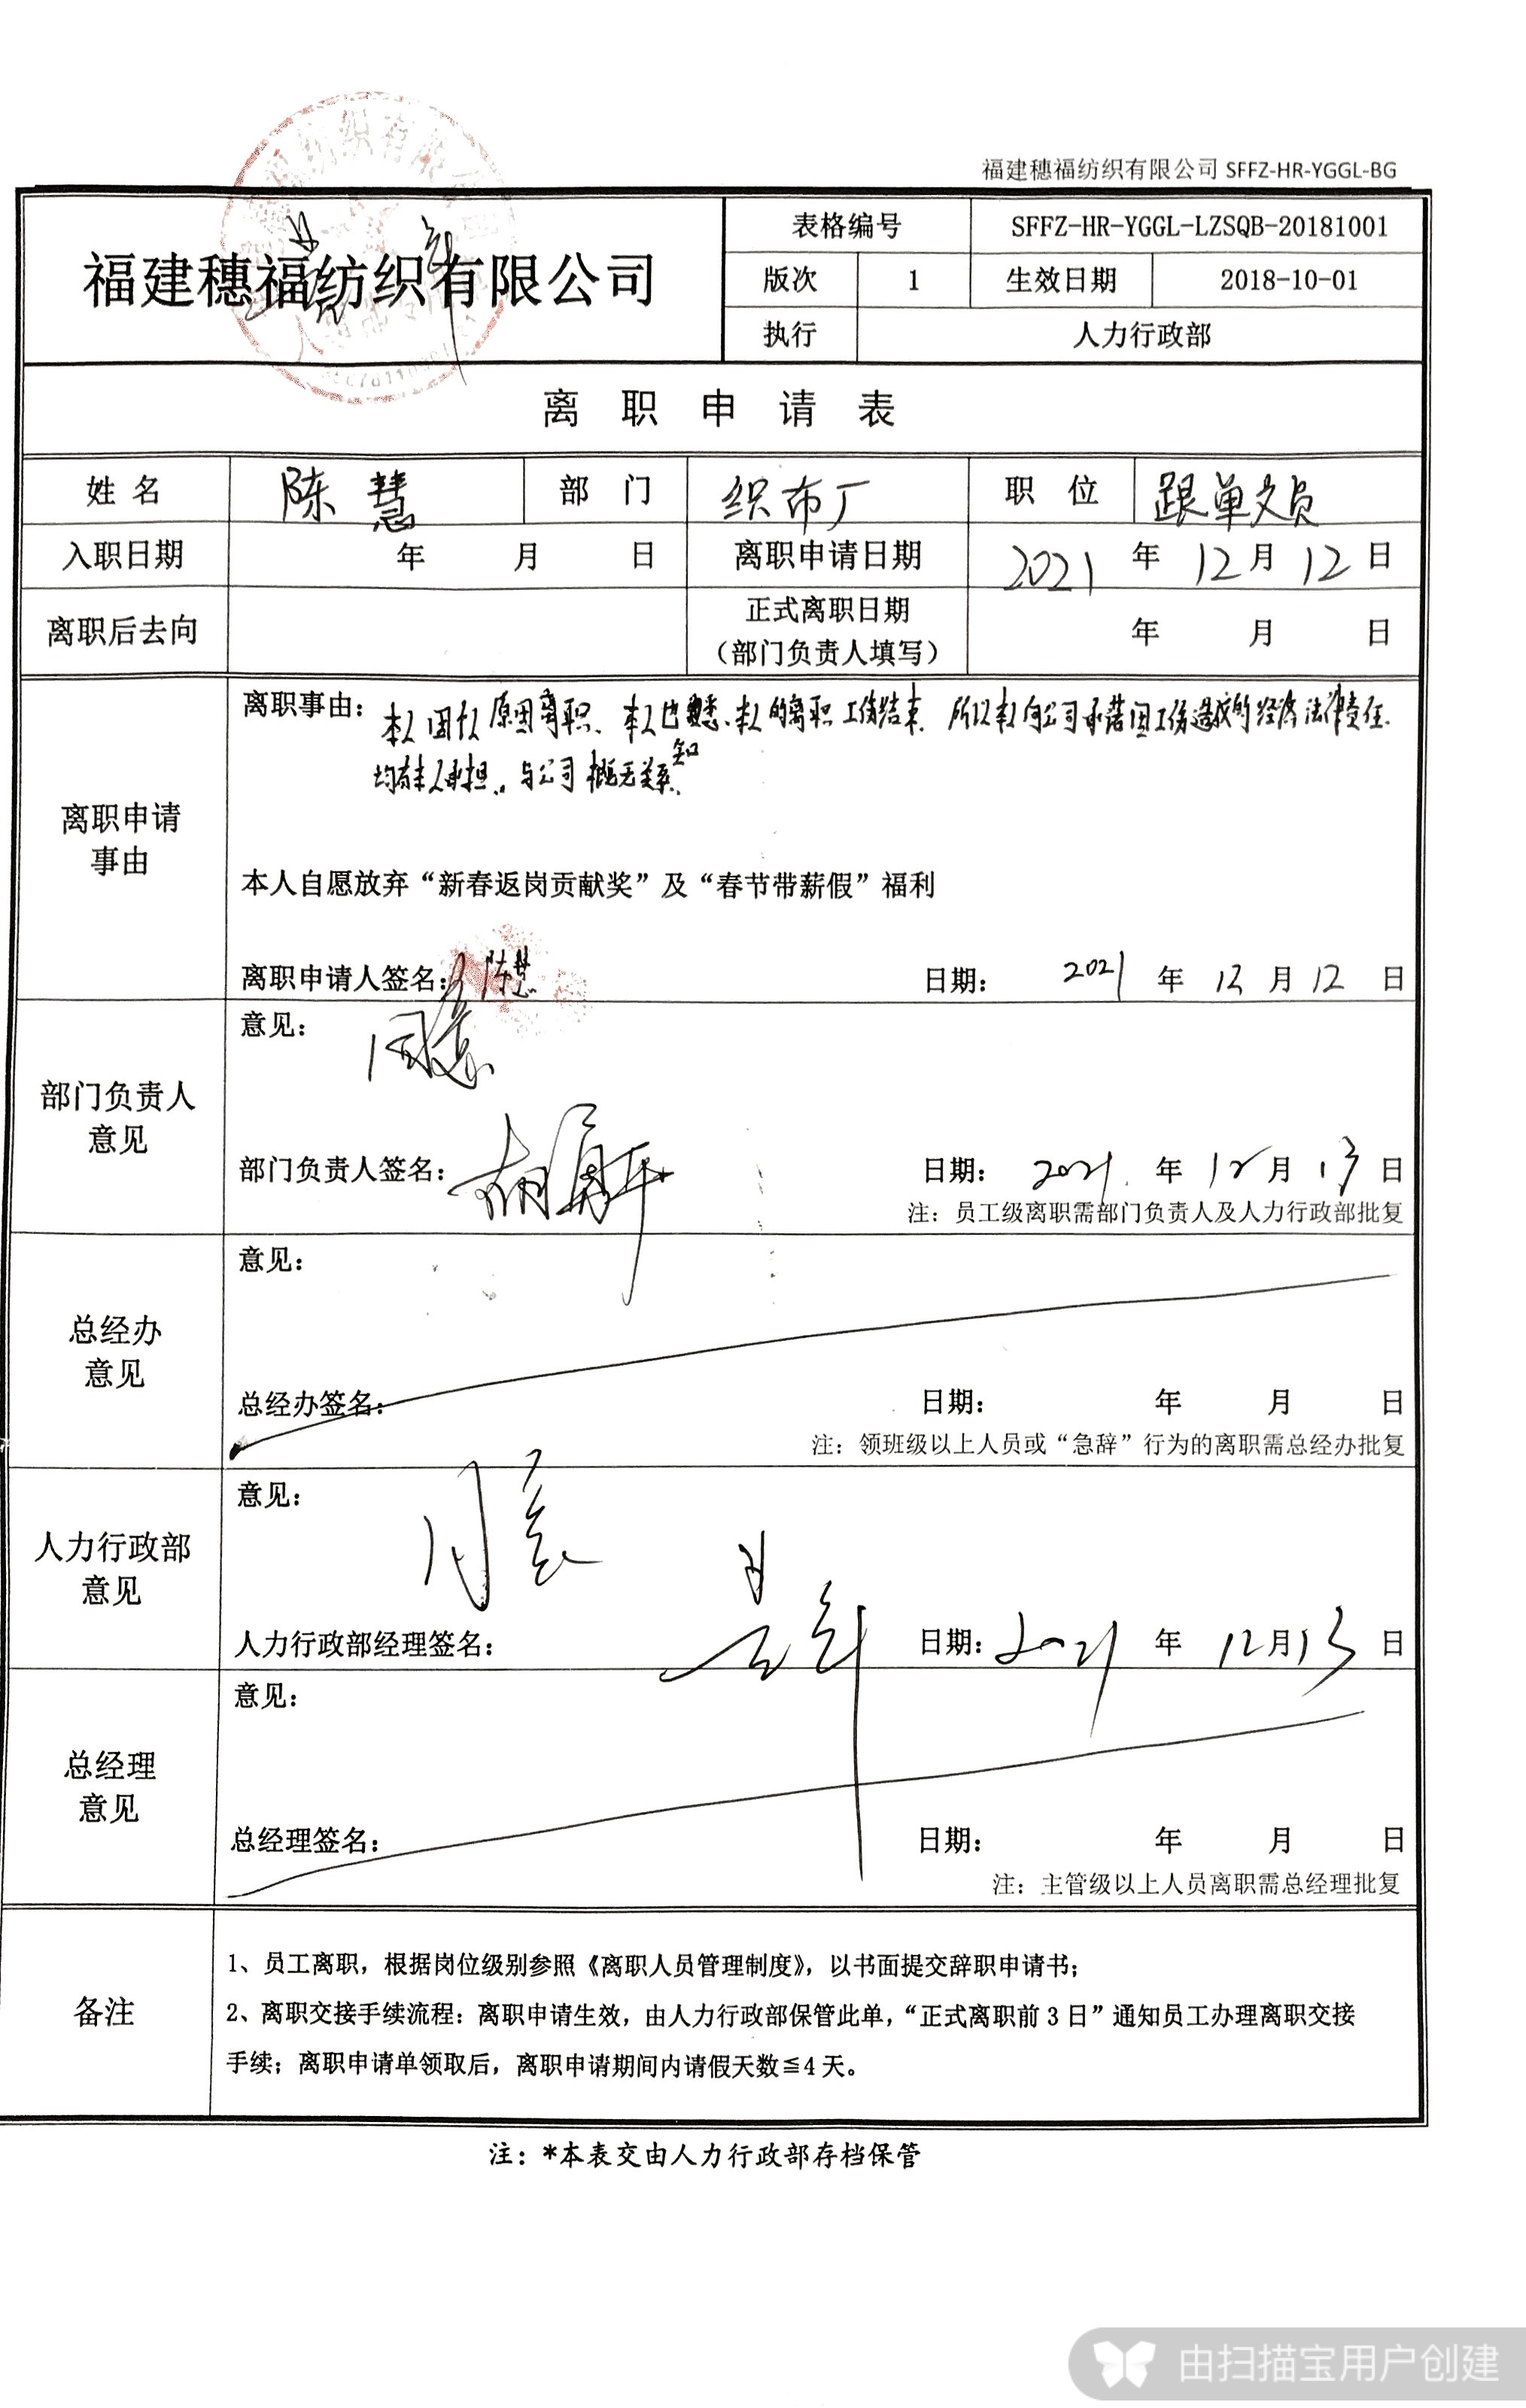 福建穗福纺织有限公司 SFFZ-HR-YGGL-BG
福建穗福纺织有限公司
表格编号 SFFZ-HR-YGGL-LZSQB-20181001
版次 1 生效日期 2018-10-01
执行 人力行政部
离 职 申 请 表
姓 名 陈慧 部 门 织布厂 职 位 跟单文员
入职日期 年 月 日 离职申请日期 2021 年 12 月 12 日
离职后去向 正式离职日期
(部门负责人填写) 年 月 日
离职申请
事由
离职事由: 本人因 原因离职、本人已 本人的离职工伤结束 所以本人向公司承诺因工伤造成的经济法律责任.
知
均有本人承担.,与公司概无关系.
本人自愿放弃“新春返岗贡献奖”及“春节带薪假”福利
离职申请人签名: 陈慧 日期: 2021 年 12 月 12 日
部门负责人
意见
意见: 同意
部门负责人签名: 日期: 2021. 年 12 月 13 日
注:员工级离职需部门负责人及人力行政部批复
总经办
意见
意见:
总经办签名: 日期: 年 月 日
注:领班级以上人员或“急辞”行为的离职需总经办批复
人力行政部
意见
意见: 同意
人力行政部经理签名: 日期: 2021 年 12 月 13 日
总经理
意见
意见:
总经理签名: 日期: 年 月 日
注:主管级以上人员离职需总经理批复
备注
1、员工离职,根据岗位级别参照《离职人员管理制度》,以书面提交辞职申请书;
2、离职交接手续流程:离职申请生效,由人力行政部保管此单,“正式离职前 3 日”通知员工办理离职交接
手续;离职申请单领取后,离职申请期间内请假天数≦4 天。
注:*本表交由人力行政部存档保管
由扫描宝用户创建